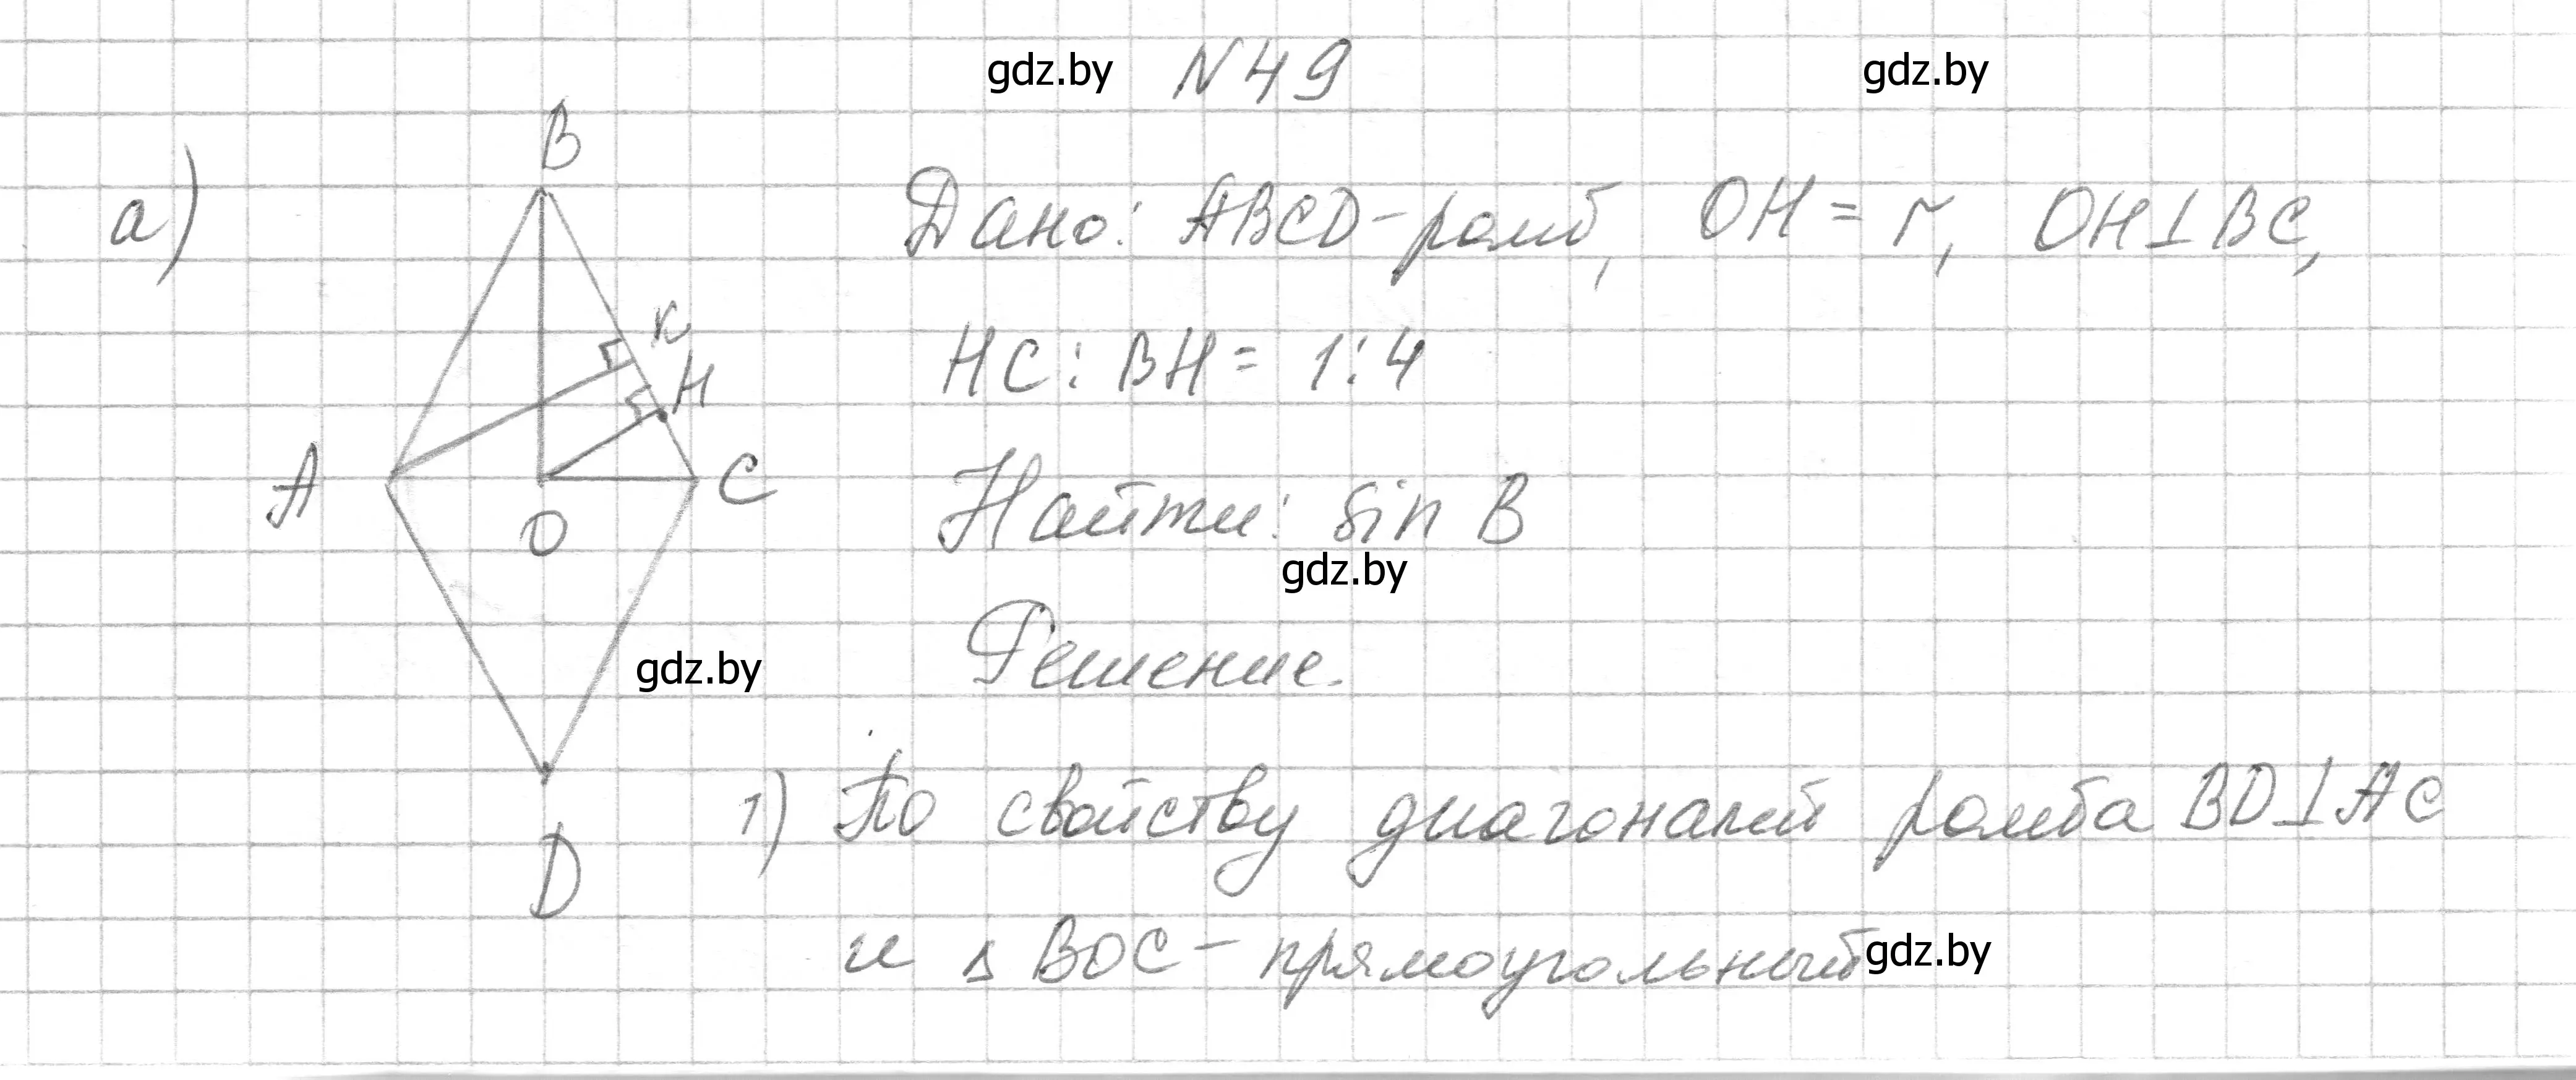 gdz.by N 49 gdz.by
а)
B
K
H
A
C
O
D
Дано: ABCD - ромб, OH = r, OH ⊥ BC,
HC : BH = 1 : 4
Найти: sin B
gdz.by
Решение.
gdz.by
1) По свойству диагоналей ромба BD ⊥ AC
и Δ BOC - прямоугольный gdz.by